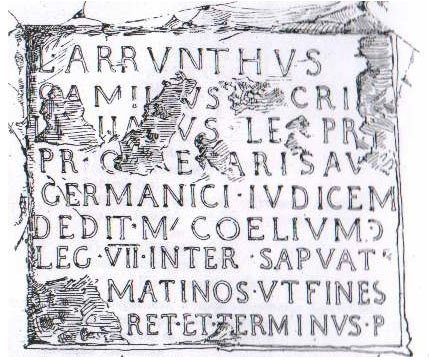 L ARRVNTHVS
CRI
LEG PR
PR· ARIS AV
GERMANICI·IVDICEM
DEDIT·M' COELIVM Ɔ
LEG·VII·INTER·SAPVAT
MATINOS·VTFINES
RET·ET·TERMINVS·P